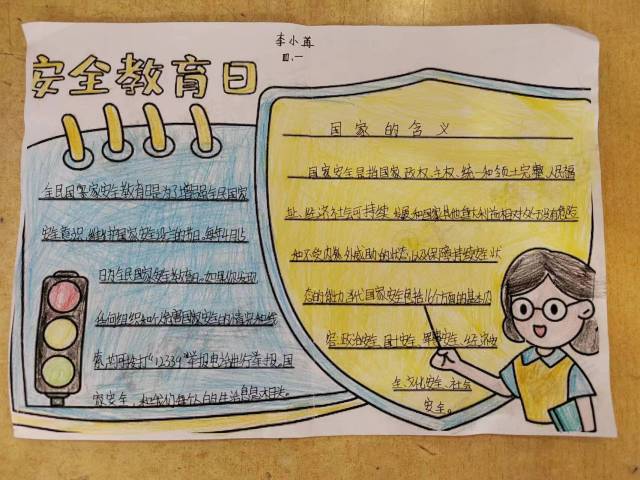 李小苒
四、一
安全教育日
全民国家安全教育日是为了增强全民国家
安全意识,维护国家安全设立的节日,每年4月15
日为全民国家安全教育日,如果你发现
任何组织和个人危害国家安全的情况和线
索,均可拨打“12339”举报电话进行举报,国
家安全,和我们每个人的生活息息相关。
国家的含义
国家安全是指国家政权、主权、统一和领土完整、人民福
祉、经济社会可持续发展和国家其他重大利益相对处于没有危险
和不受内外威胁的状态,以及保障持续安全状
态的能力,当代国家安全包括16个方面的基本内
容:政治安全、国土安全、军事安全、经济安
全、文化安全、社会
安全。